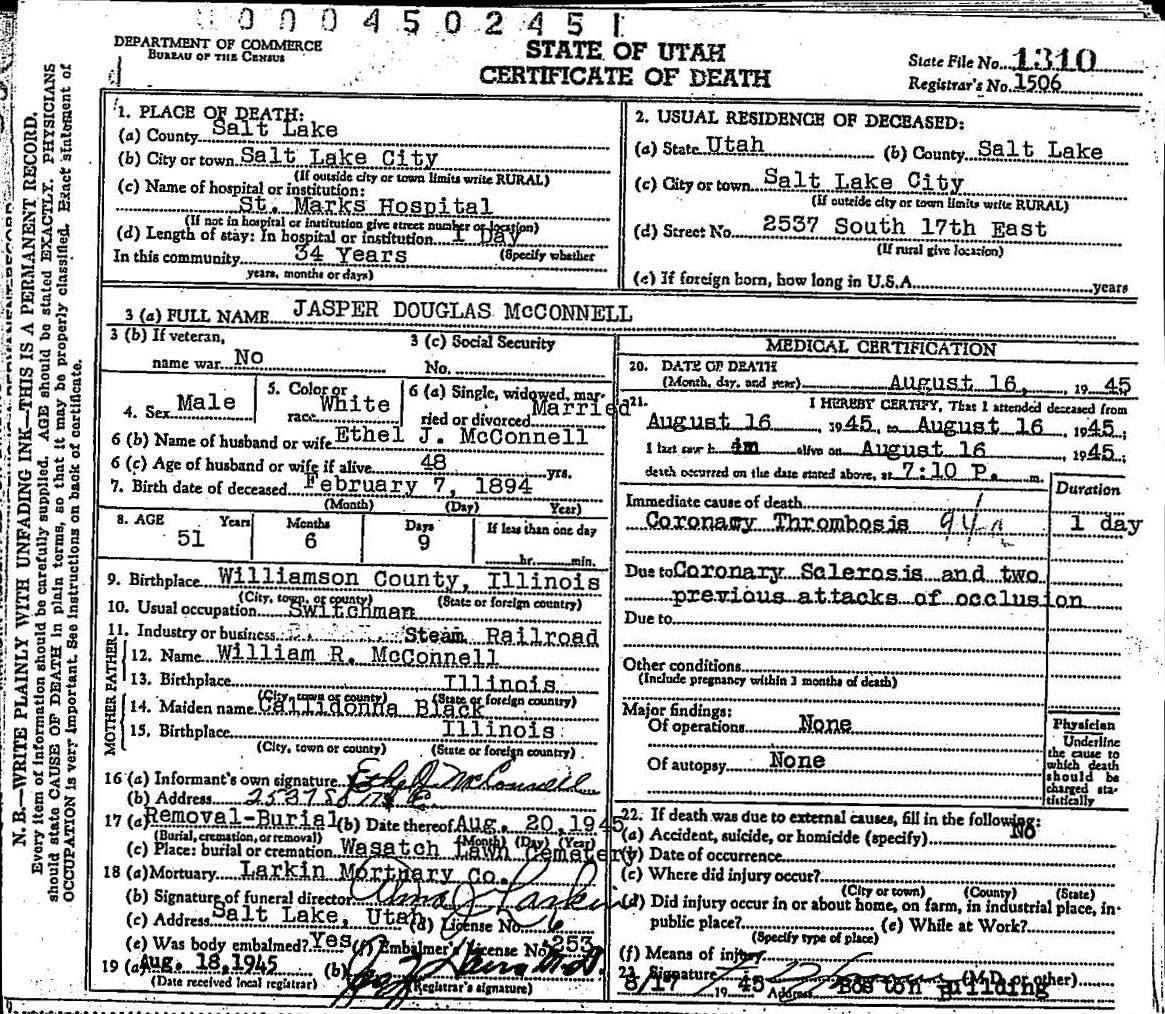 0004502451
DEPARTMENT OF COMMERCE
BUREAU OF THE CENSUS
d
STATE OF UTAH
CERTIFICATE OF DEATH
State File No. 1310
Registrar's No. 1506
N. B.—WRITE PLAINLY WITH UNFADING INK—THIS IS A PERMANENT RECORD.
Every item of information should be carefully supplied. AGE should be stated EXACTLY. PHYSICIANS
should state CAUSE OF DEATH in plain terms, so that it may be properly classified. Exact statement of
OCCUPATION is very important. See instructions on back of certificate.
1. PLACE OF DEATH:
(a) County Salt Lake
(b) City or town Salt Lake City
(If outside city or town limits write RURAL)
(c) Name of hospital or institution:
St. Marks Hospital
(If not in hospital or institution give street number or location)
(d) Length of stay: In hospital or institution 1 Day
In this community 34 Years (Specify whether
years, months or days)
2. USUAL RESIDENCE OF DECEASED:
(a) State Utah (b) County Salt Lake
(c) City or town Salt Lake City
(If outside city or town limits write RURAL)
(d) Street No. 2537 South 17th East
(If rural give location)
(e) If foreign born, how long in U.S.A. years
3 (a) FULL NAME JASPER DOUGLAS McCONNELL
3 (b) If veteran,
name war No
3 (c) Social Security
No.
4. Sex Male
5. Color or
race White
6 (a) Single, widowed, mar-
ried or divorced Married
6 (b) Name of husband or wife Ethel J. McConnell
6 (c) Age of husband or wife if alive 48 yrs.
7. Birth date of deceased February 7, 1894
(Month) (Day) Year)
8. AGE Years Months Days If less than one day
51 6 9
hr. min.
9. Birthplace Williamson County, Illinois
(City, town, or county) (State or foreign country)
10. Usual occupation Switchman
11. Industry or business Steam Railroad
FATHER
12. Name William R. McConnell
13. Birthplace Illinois
(City, town or county) (State or foreign country)
MOTHER
14. Maiden name Callidonna Black
15. Birthplace Illinois
(City, town or county) (State or foreign country)
16 (a) Informant's own signature Ethel J McConnell
(b) Address 2537 So 17th E
17 (a) Removal-Burial (b) Date thereof Aug. 20, 1945
(Burial, cremation, or removal) (Month) (Day) (Year)
(c) Place: burial or cremation Wasatch Lawn Cemetery
18 (a) Mortuary Larkin Mortuary Co.
(b) Signature of funeral director Alma J Larkin
(c) Address Salt Lake, Utah (d) License No. 6
(e) Was body embalmed? Yes (f) Embalmer's License No. 253
19 (a) Aug. 18, 1945 (b)
(Date received local registrar) (Registrar's signature)
MEDICAL CERTIFICATION
20. DATE OF DEATH
(Month, day, and year) August 16, 19 45
21. I HEREBY CERTIFY, That I attended deceased from
August 16 1945, to August 16 1945;
I last saw h im alive on August 16, 1945;
death occurred on the date stated above, at 7:10 P. m.
Duration
Immediate cause of death
Coronary Thrombosis 94a 1 day
Due to Coronary Sclerosis and two
previous attacks of occlusion
Due to
Other conditions
(Include pregnancy within 3 months of death)
Major findings:
Of operations None
Of autopsy None
Physician
Underline
the cause to
which death
should be
charged sta-
tistically
22. If death was due to external causes, fill in the following:
(a) Accident, suicide, or homicide (specify) No
(b) Date of occurrence
(c) Where did injury occur?
(City or town) (County) (State)
(d) Did injury occur in or about home, on farm, in industrial place, in
public place? (e) While at Work?
(Specify type of place)
(f) Means of injury
23. Signature (M.D. or other)
8/17 19 45 Address Boston Building